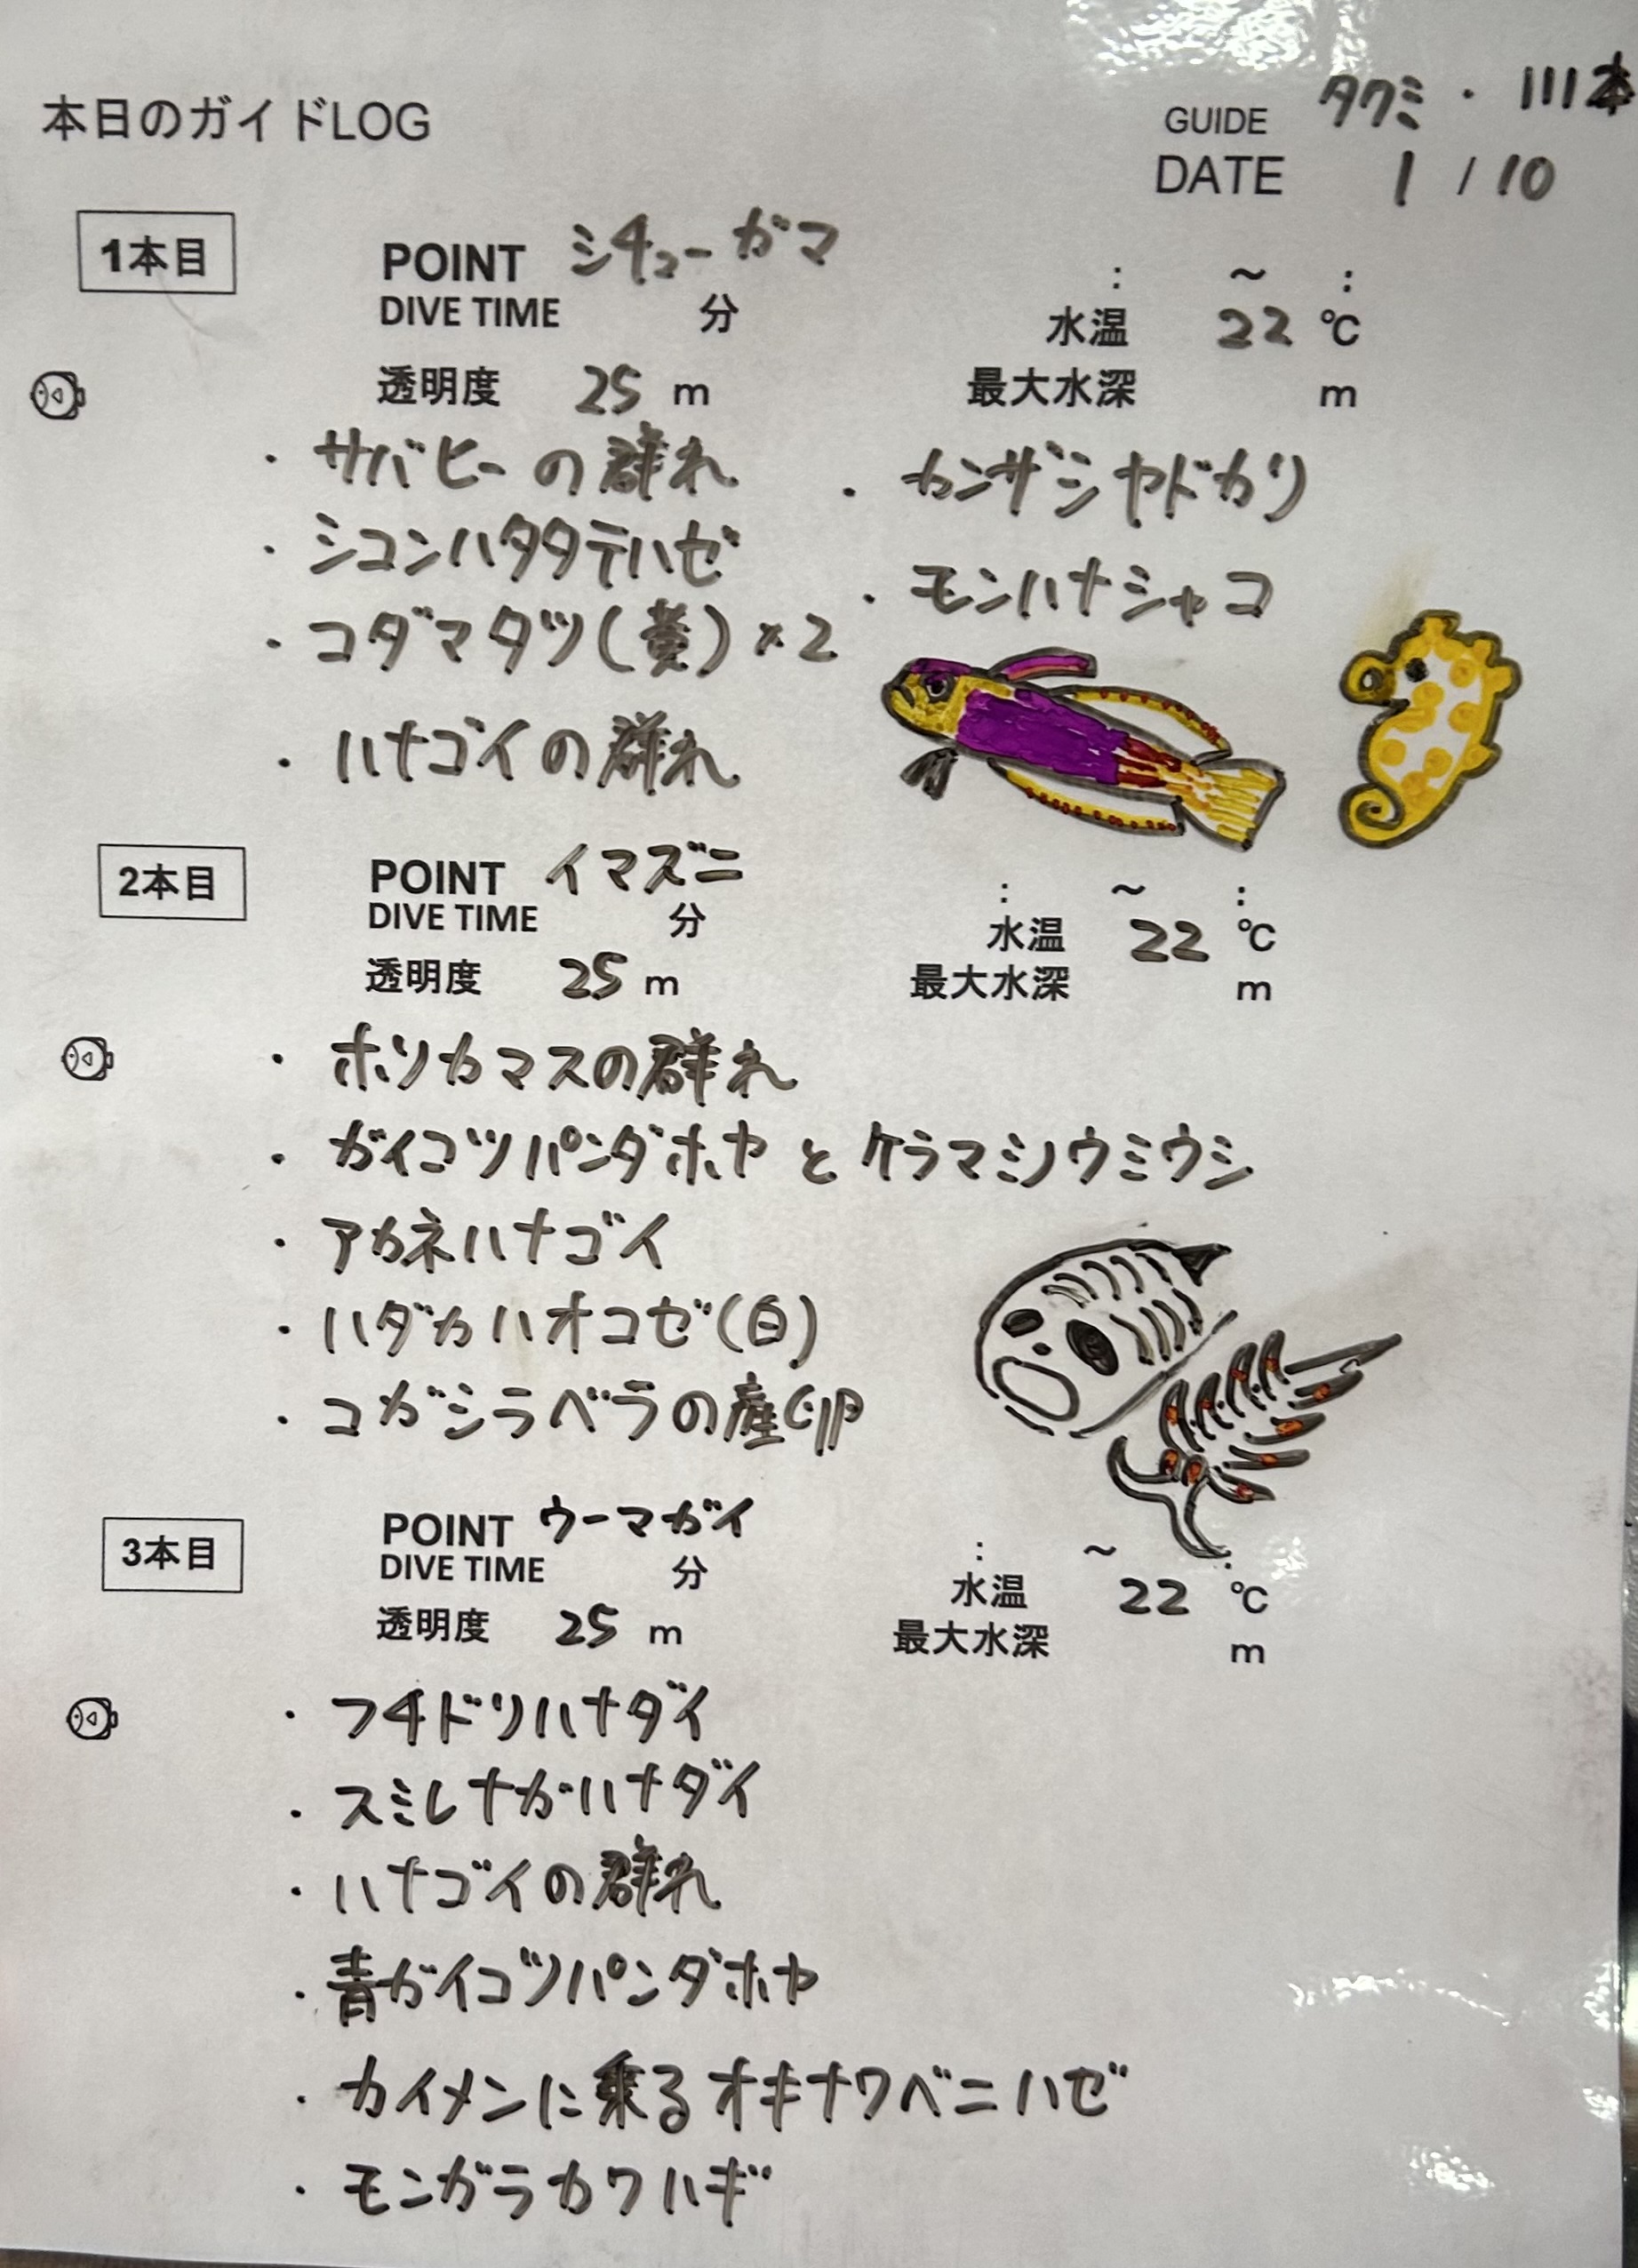 本日のガイドLOG
GUIDE タクミ・川本
DATE 1 / 10
1本目
POINT シチューガマ
: ~ :
DIVE TIME 分
水温 22 ℃
透明度 25 m
最大水深 m
・サバヒーの群れ
・シコンハタタテハゼ
・コダマタツ(黄)×2
・ハナゴイの群れ
・カンザシヤドカリ
・モンハナシャコ
2本目
POINT イマズニ
: ~ :
DIVE TIME 分
水温 22 ℃
透明度 25 m
最大水深 m
・ホソカマスの群れ
・ガイコツパンダホヤ と ケラマミノウミウシ
・アカネハナゴイ
・ハダカハオコゼ(白)
・コガシラベラの産卵
3本目
POINT ウーマガイ
: ~ :
DIVE TIME 分
水温 22 ℃
透明度 25 m
最大水深 m
・フチドリハナダイ
・スミレナガハナダイ
・ハナゴイの群れ
・青ガイコツパンダホヤ
・カイメンに乗るオキナワベニハゼ
・モンガラカワハギ